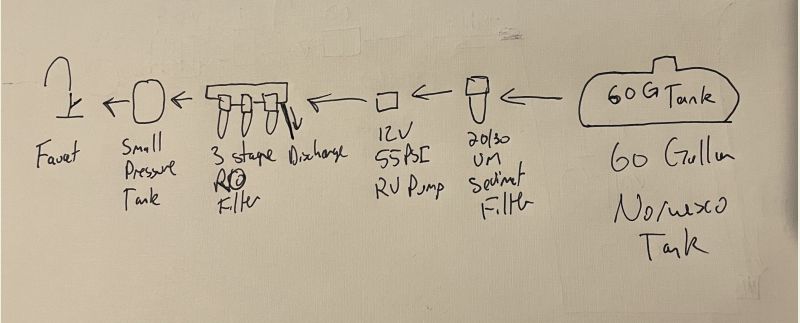 60 G Tank
Favet
Small
Pressure
Tank
3 stage
RO
Filter
Discharge
12V
55 PSI
RV Pump
20/30
UM
Sedimet
Filter
60 Gallon
Norwesco
Tank